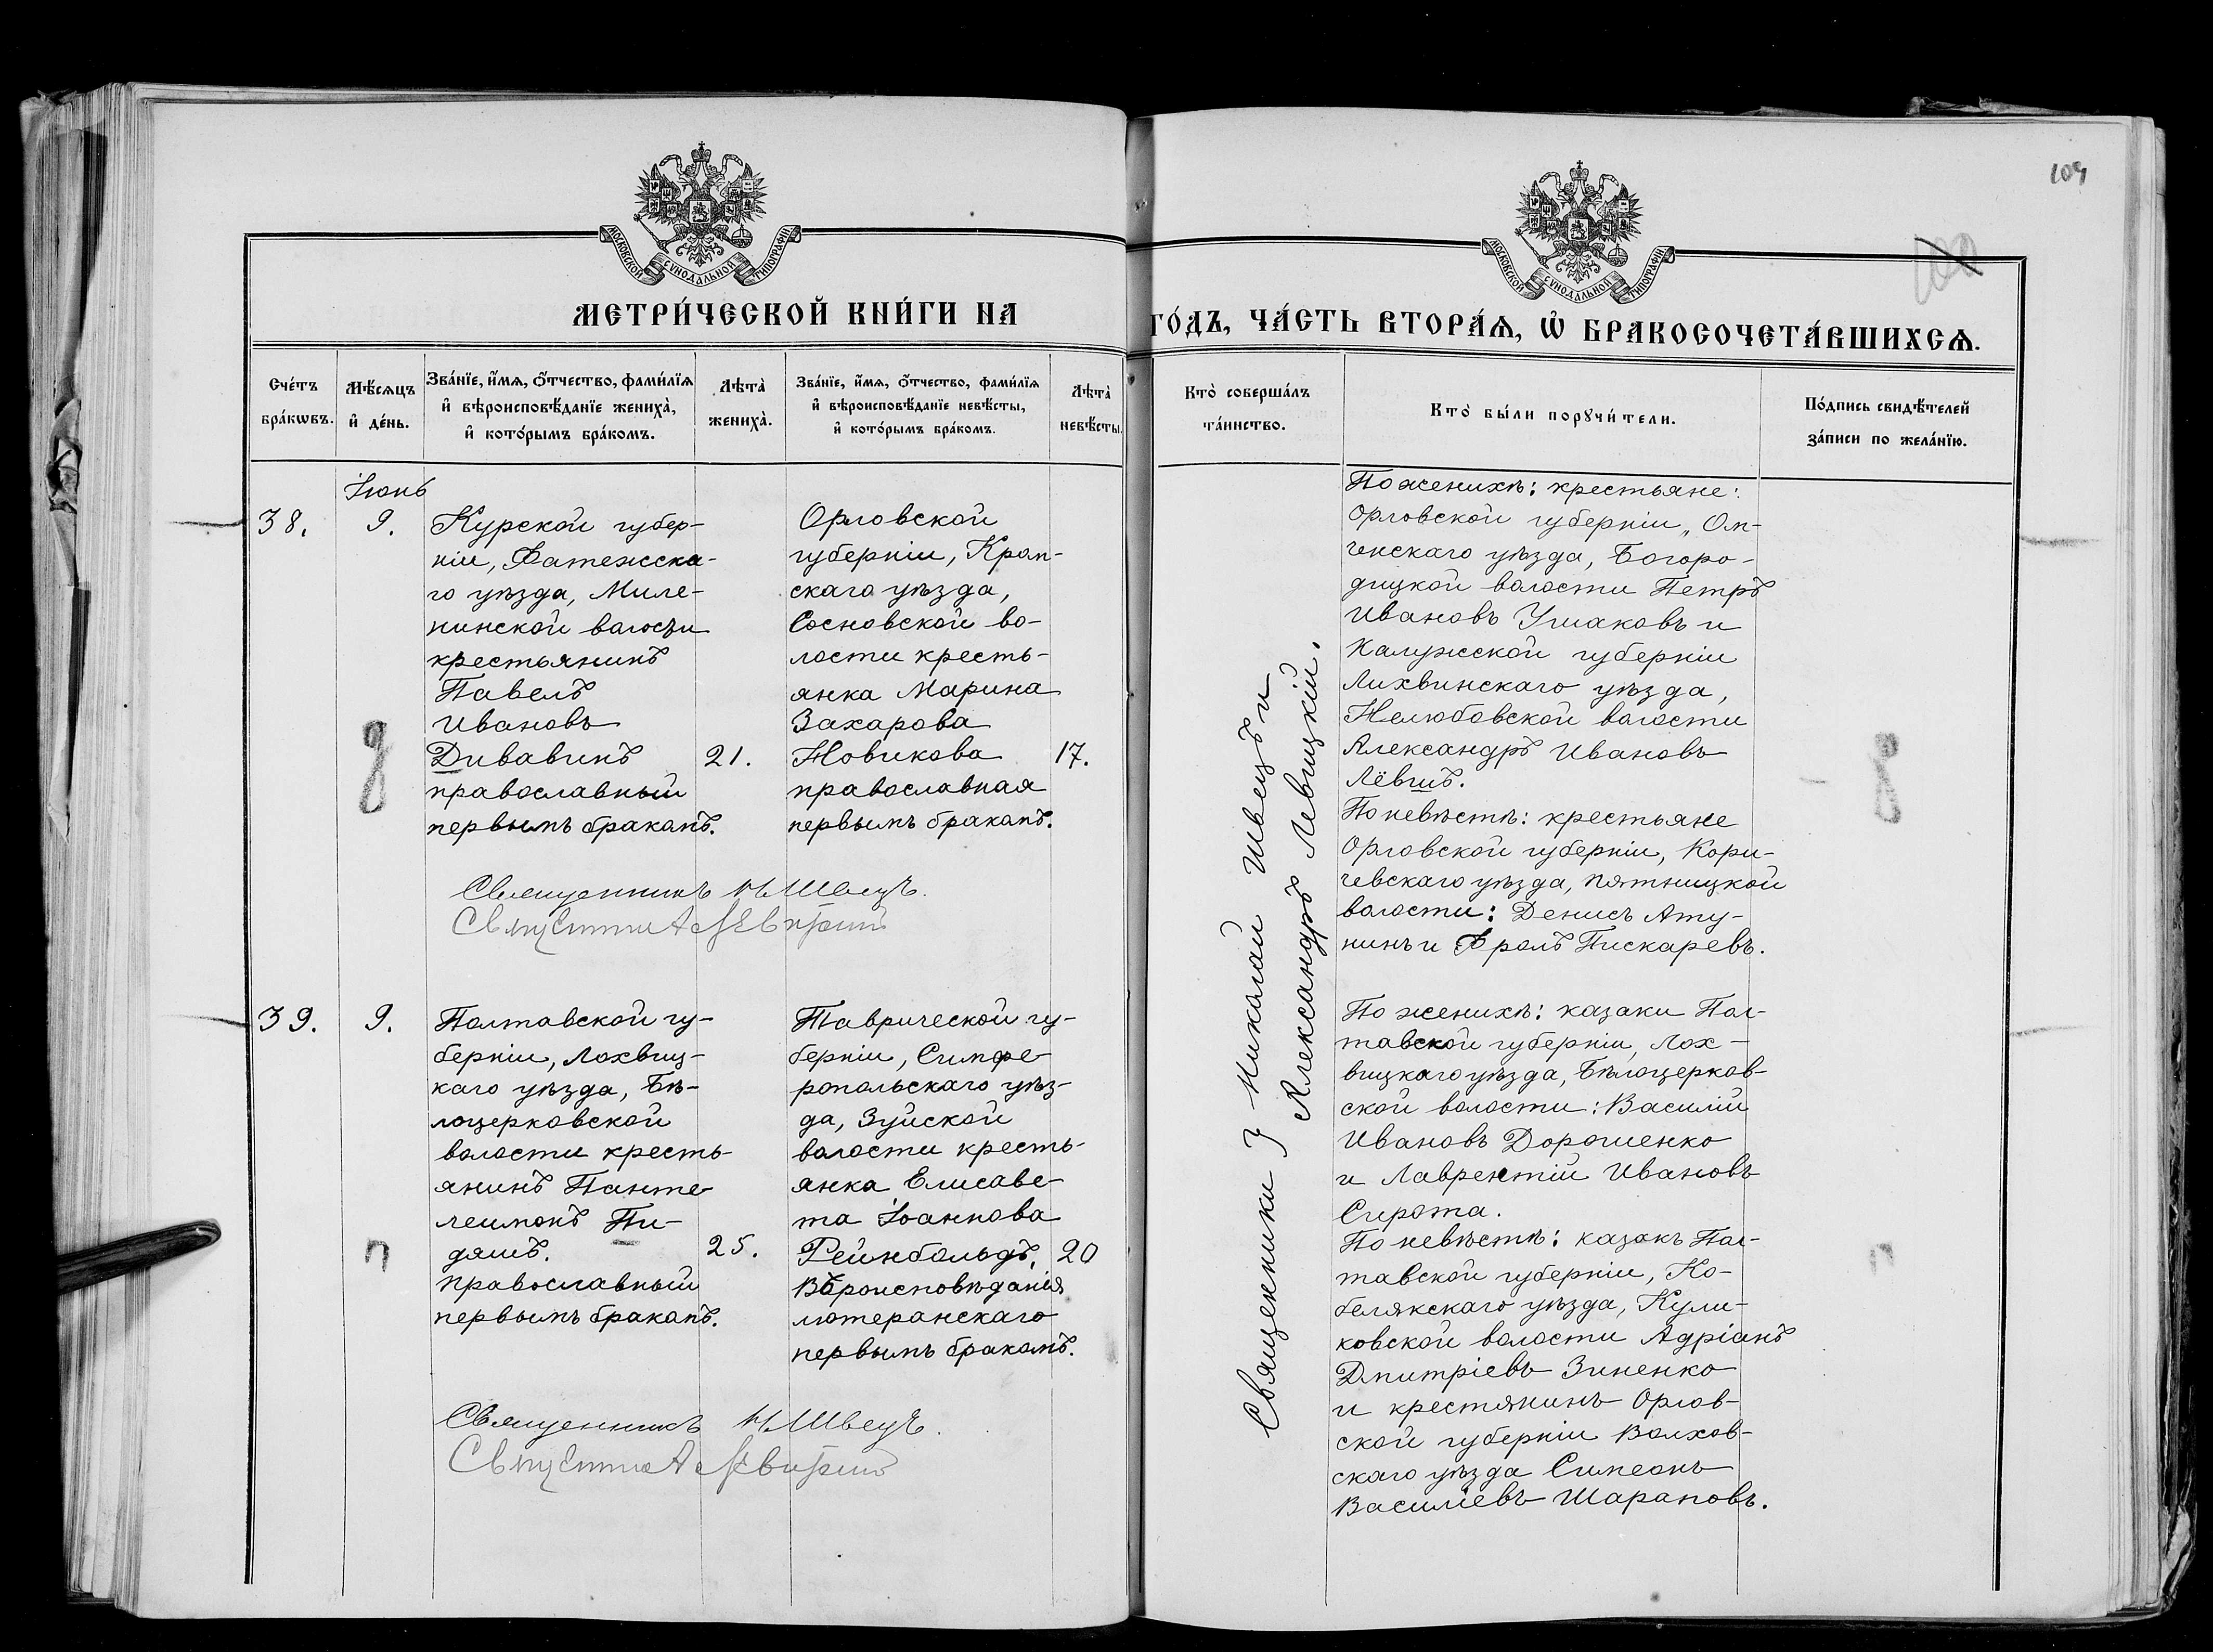 109
100
МОСКОВСКОЙ СУНОДАЛЬНОЙ ТИПОГРАФІИ
МОСКОВСКОЙ СУНОДАЛЬНОЙ ТИПОГРАФІИ
МЕТРИ́ЧЕСКОЙ КНИ́ГИ НА
ГО́ДЪ, ЧА́СТЬ ВТОРА́Ѧ, Ѡ҆ БРАКОСОЧЕТА́ВШИХСѦ.
Сче́тъ
бра́кѡвъ.
Мѣ́сѧцъ
и҆ де́нь.
Зва́нїе, и҆́мѧ, ѻ҆́тчество, фами́лїѧ
и҆ вѣроисповѣ́данїе жениха̀,
и҆ кото́рымъ бра́комъ.
Лѣта̀
жениха̀.
Зва́нїе, и҆́мѧ, ѻ҆́тчество, фами́лїѧ
и҆ вѣроисповѣ́данїе невѣ́сты,
и҆ кото́рымъ бра́комъ.
Лѣта̀
невѣ́сты.
Кто̀ соверша́лъ
та́инство.
Кто̀ бы́ли порꙋчи́тели.
По́дпись свидѣ́телей
за́писи по жела́нїю.
Іюнь
38.
9.
Курской губер-
ніи, Фатежска-
го уѣзда, Миле-
нинской волости
крестьянинъ
Павелъ
Ивановъ
Дивавинъ
православный
первымъ бракомъ.
21.
Орловской
губерніи, Кром-
скаго уѣзда,
Сосновской во-
лости кресть-
янка Марина
Захарова
Новикова
православная
первымъ бракомъ.
17.
Священникъ Н Швецъ.
Священникъ А Левицкій
Священники Николай Швецъ и
Александръ Левицкій.
По женихѣ: крестьяне:
Орловской губерніи, Ом-
ченскаго уѣзда, Богоро-
дицкой волости Петръ
Ивановъ Ушаковъ и
Калужской губерніи
Лихвинскаго уѣзда,
Нелюбовской волости
Александръ Ивановъ
Лёвшъ.
По невѣстѣ: крестьяне
Орловской губерніи, Кори-
чевскаго уѣзда, Пятницкой
волости: Денисъ Ату-
нинъ и Фролъ Пискаревъ.
39.
9.
Полтавской гу-
берніи, Лохвиц-
каго уѣзда, Бѣ-
лоцерковской
волости кресть-
янинъ Панте-
леимонъ Пи-
дяшъ.
православный
первымъ бракомъ.
25.
Таврической гу-
берніи, Симфе-
ропольскаго уѣз-
да, Зуйской
волости кресть-
янка Елисаве-
та Іоаннова
Рейнбольдъ,
Вѣроисповѣданія
лютеранскаго
первымъ бракомъ.
20
Священникъ Н Швецъ.
Священникъ А Левицкій
По женихѣ: казаки Пол-
тавской губерніи, Лох-
вицкаго уѣзда, Бѣлоцерков-
ской волости: Василій
Ивановъ Дорошенко
и Лаврентій Ивановъ
Сирота.
По невѣстѣ: казакъ Пол-
тавской губерніи, Ко-
белякскаго уѣзда, Кули-
ковской волости Адріанъ
Дмитріевъ Зиненко
и крестянинъ Орлов-
ской губерніи Волхов-
скаго уѣзда Симеонъ
Василіевъ Шараповъ.